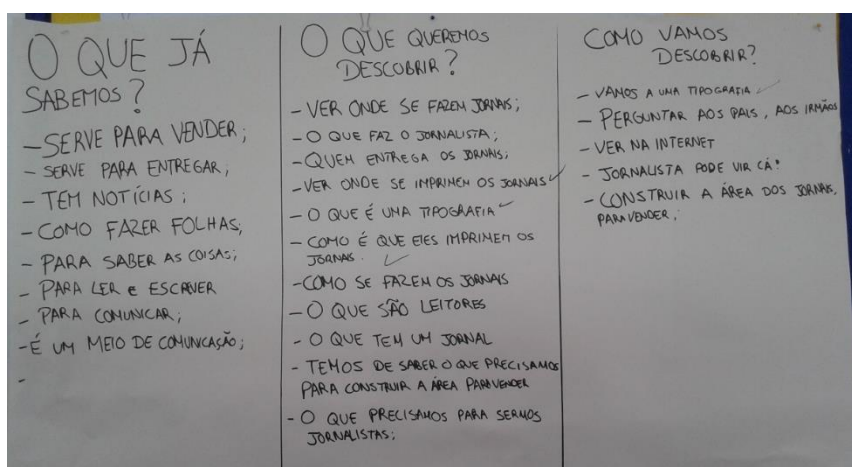 O QUE JÁ
SABEMOS?
- SERVE PARA VENDER;
- SERVE PARA ENTREGAR;
- TEM NOTÍCIAS;
- COMO FAZER FOLHAS;
- PARA SABER AS COISAS;
- PARA LER e ESCREVER
- PARA COMUNICAR;
- É UM MEIO DE COMUNICAÇÃO;
-
O QUE QUEREMOS
DESCOBRIR?
- VER ONDE SE FAZEM JORNAIS;
- O QUE FAZ O JORNALISTA;
- QUEM ENTREGA OS JORNAIS;
- VER ONDE SE IMPRIMEM OS JORNAIS ✓
- O QUE É UMA TIPOGRAFIA ✓
- COMO É QUE ELES IMPRIMEM OS
JORNAIS. ✓
- COMO SE FAZEM OS JORNAIS
- O QUE SÃO LEITORES
- O QUE TEM UM JORNAL
- TEMOS DE SABER O QUE PRECISAMOS
PARA CONSTRUIR A ÁREA PARA VENDER
- O QUE PRECISAMOS PARA SERMOS
JORNALISTAS;
COMO VAMOS
DESCOBRIR?
- VAMOS A UMA TIPOGRAFIA ✓
- PERGUNTAR AOS PAIS, AOS IRMÃOS
- VER NA INTERNET
- JORNALISTA PODE VIR CÁ?
- CONSTRUIR A ÁREA DOS JORNAIS,
PARA VENDER;